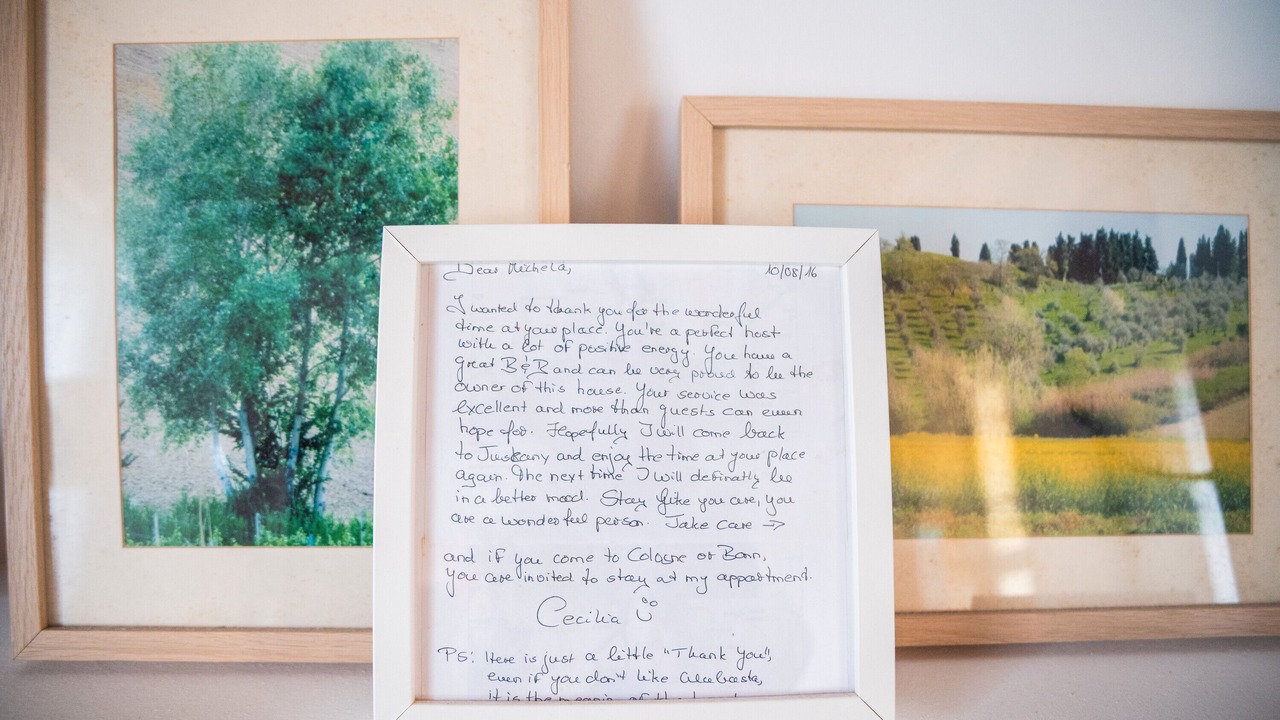 Dear Michela, 10/08/16
I wanted to thank you for the wonderful
time at your place. You're a perfect host
with a lot of positive energy. You have a
great B&B and can be very proud to be the
owner of this house. Your service was
excellent and more than guests can even
hope for. Hopefully I will come back
to Tuskany and enjoy the time at your place
again. The next time I will definatly be
in a better mood. Stay like you are, you
are a wonderful person. Take care →
and if you come to Cologne or Bonn,
you are invited to stay at my appartment.
Cecilia
PS: Here is just a little "Thank You",
even if you don't like
it is the of the